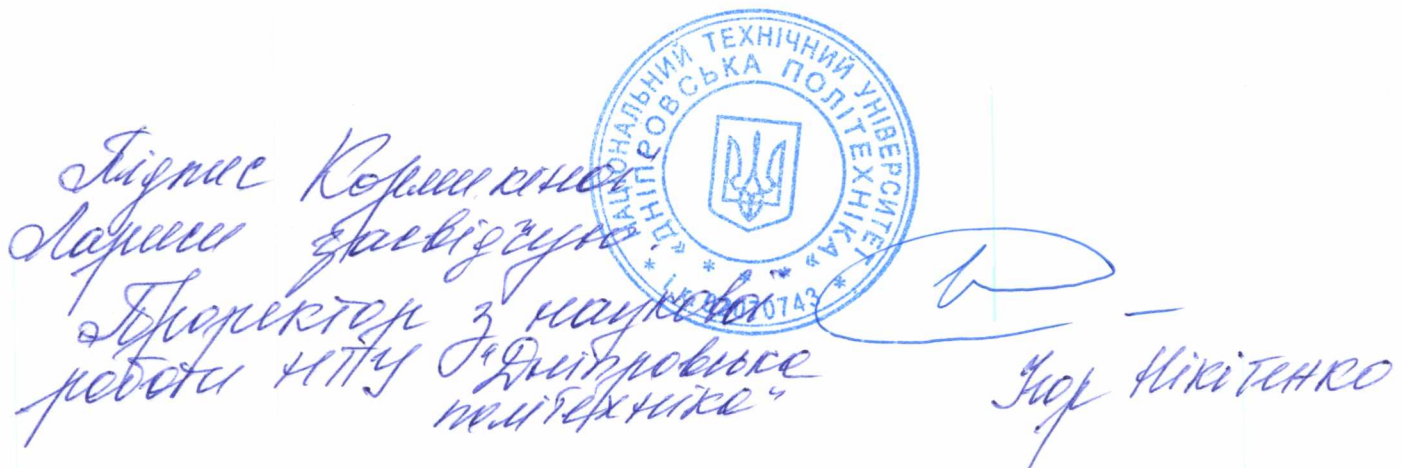 НАЦІОНАЛЬНИЙ ТЕХНІЧНИЙ УНІВЕРСИТЕТ
«ДНІПРОВСЬКА ПОЛІТЕХНІКА»
Підпис
Лариси засвідчую.
Проректор з наукової
роботи НТУ "Дніпровська
політехніка"
Ігор Нікітенко